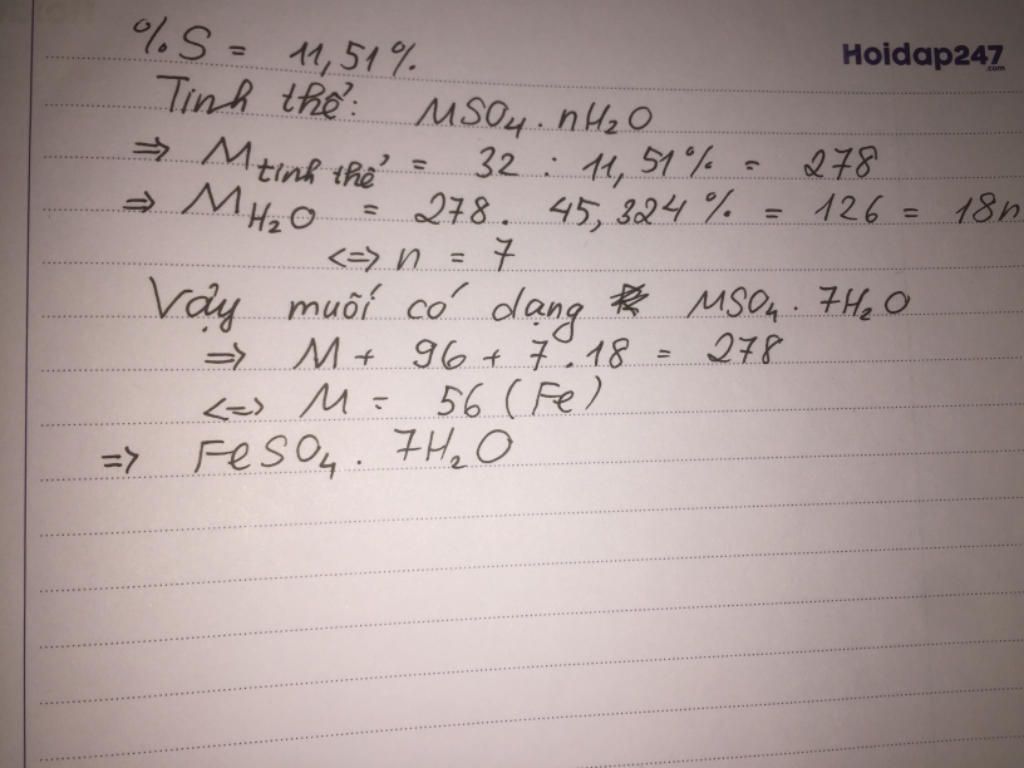 %S = 11,51%.
Hoidap247
.com
Tinh thể: MSO₄ . nH₂O
=> M tinh thể = 32 : 11,51% = 278
=> M H₂O = 278. 45,324% = 126 = 18n
<=> n = 7
Vậy muối có dạng MSO₄ . 7H₂O
=> M + 96 + 7 . 18 = 278
<=> M = 56 (Fe)
=> FeSO₄ . 7H₂O